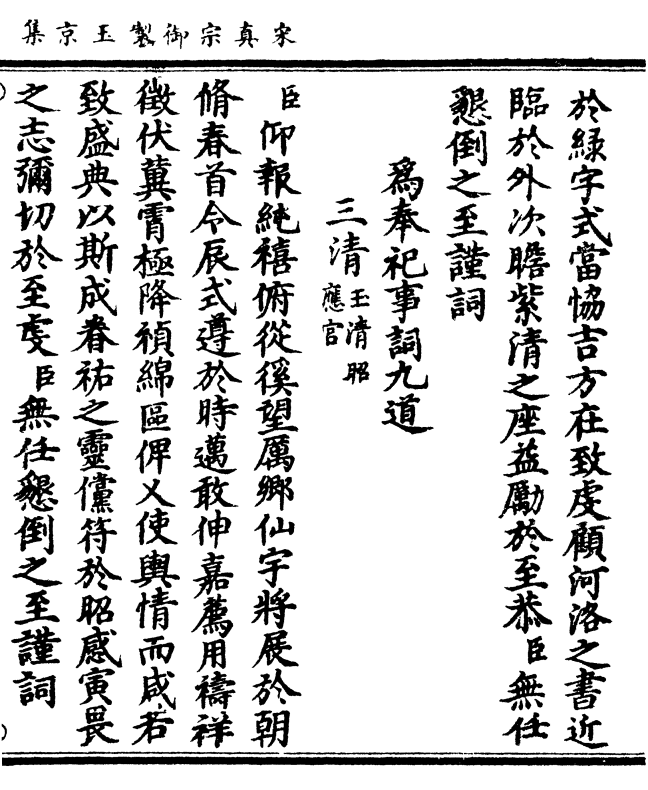 宋真宗御製玉京集
於綠字式當協吉方在致虔顧河洛之書近
臨於外次瞻紫清之座益勵於至恭臣無任
懇倒之至謹詞
為奉祀事詞九道
三清玉清昭應宮
臣仰報純禧俯從徯望厲鄉仙宇將展於朝
脩春首令辰式遵於時邁敢伸嘉薦用禱祥
徵伏冀霄極降禎綿區俾乂使輿情而咸若
致盛典以斯成眷祐之靈儻符於昭感寅畏
之志彌切於至虔臣無任懇倒之至謹詞